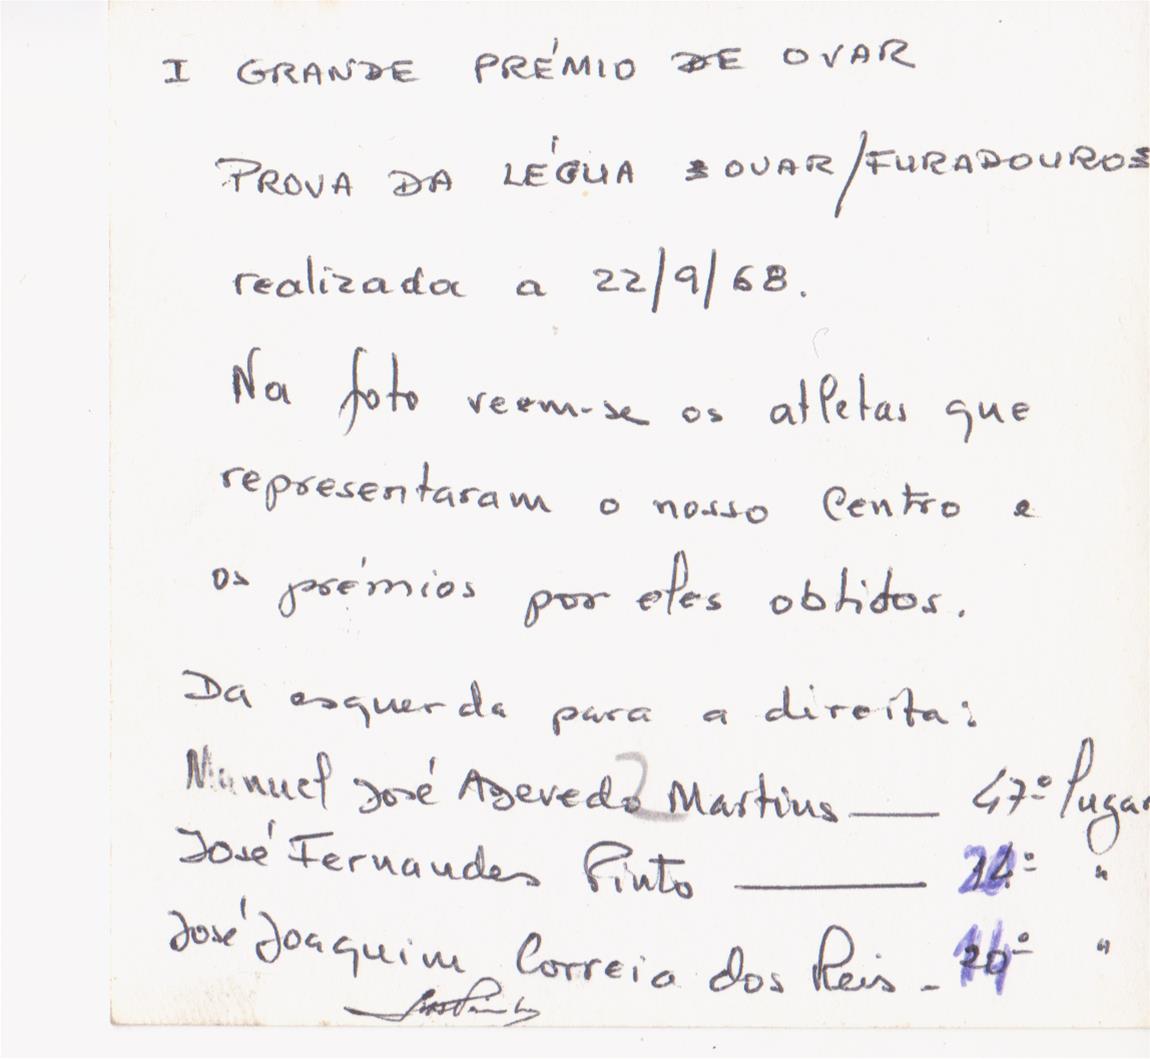 I GRANDE PRÉMIO DE OVAR
PROVA DA LÉGUA OVAR/FURADOURO
realizada a 22/9/68.
Na foto veem-se os atletas que
representaram o nosso Centro e
os prémios por eles obtidos.
Da esquerda para a direita:
Manuel José Azevedo Martins — 47º lugar
José Fernandes Pinto — º "
José Joaquim Correia dos Reis - º "